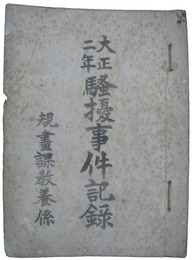 大正二年騒擾事件記録
規畫課教養係